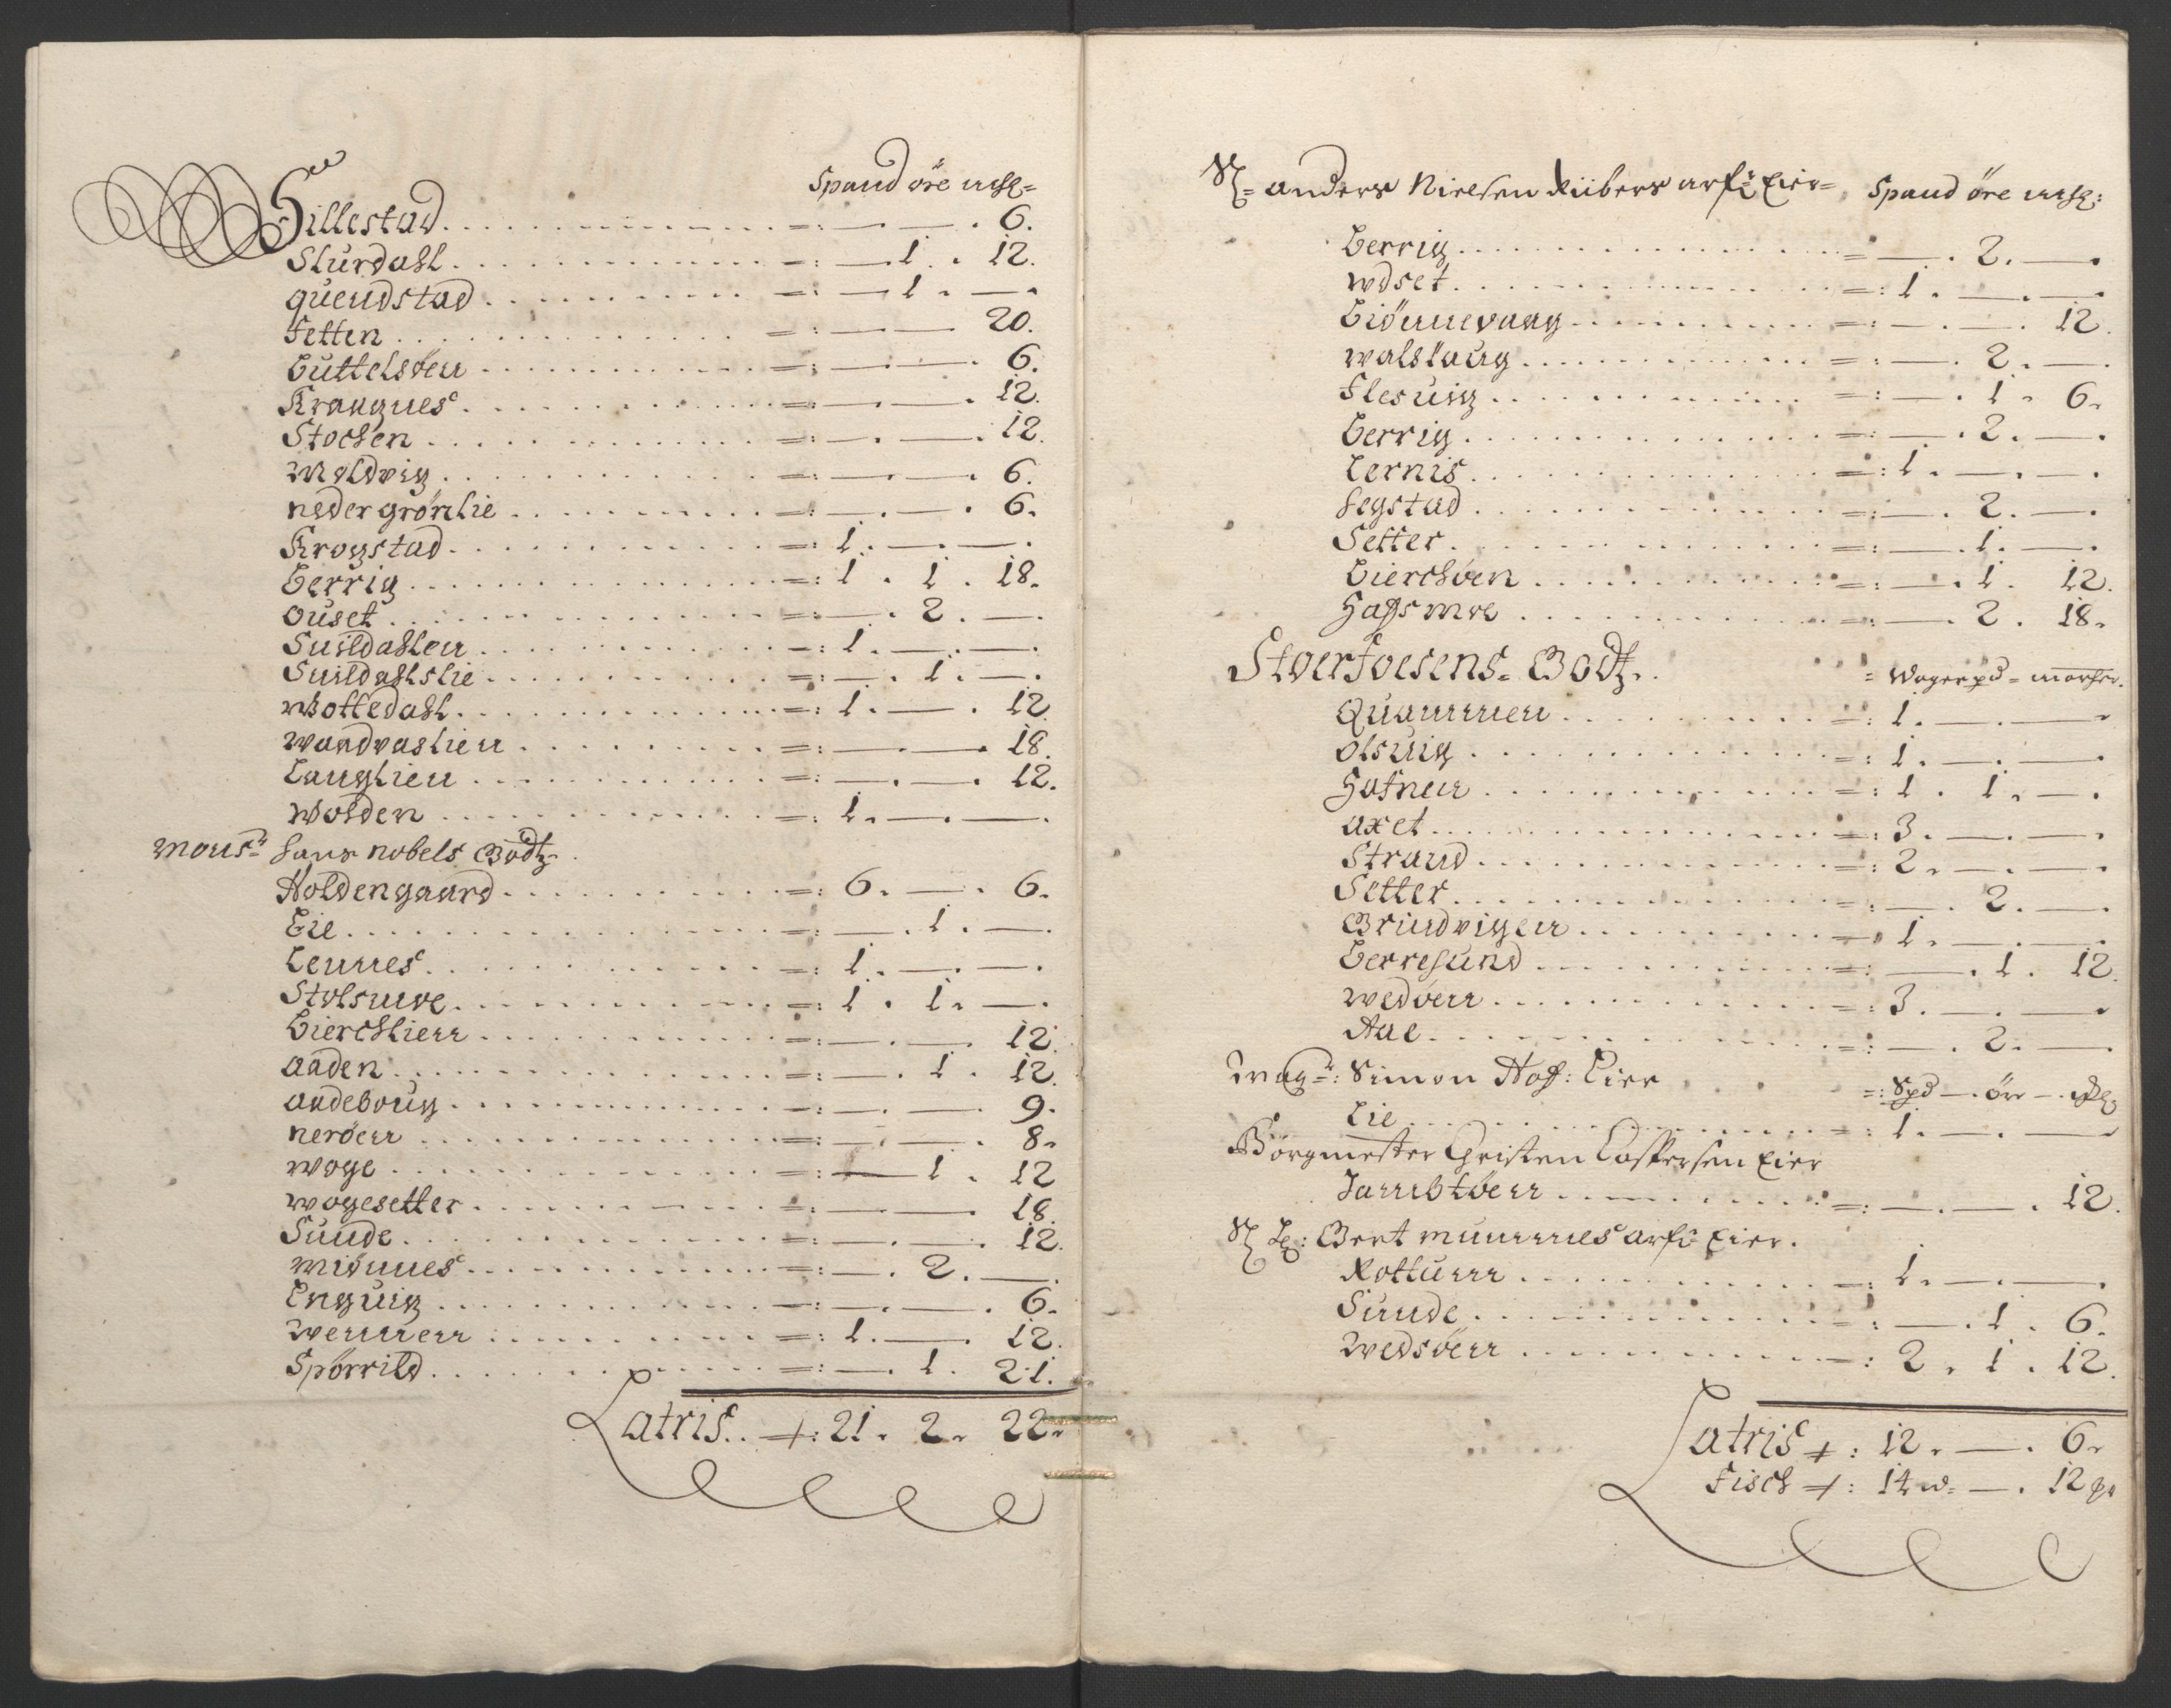 Spand öre mrk=
Sillestad . . . =: — — . 6.
Slurdahl . . . =: — 1 . 12.
quendstad . . . =: — 1 . —
Fetten . . . =: — — 20.
Buttelsöen . . . =: — — . 6.
Krangnes . . . =: — . — . 12.
Stochen . . . =: — . — . 12.
Moldvig . . . =: — . — . 6.
neder grönlie . . . =: — . — . 6.
Krogstad . . . =: 1 . — . — .
Berrig . . . =: 1 . 1 . 18.
ouset . . . =: — . 2 . —
Suildahlen . . . =: 1 . — . —
Suildahlslie . . . =: — . 1 . — .
Mottedahl . . . =: 1 . — . 12
Wandvaslien . . . =: — . — . 18.
Langlien . . . =: — . — . 12.
Wolden . . . =: 1 . — . —
Monsr Hans Nobels Godtz
Holdengaard . . . =: 6 . — . 6.
Eie . . . =: — . 1 . —
Lennes . . . =: 1 . — . — .
Stolsmoe . . . =: 1 . 1 . — .
Bierchlien . . . =: — . — . 12.
aaden . . . =: — . 1 . 12.
aadeboug . . . =: — . — . 9.
neröen . . . =: — . — . 8.
Woge . . . =: — 1 . 12
Wogesetter . . . =: — . — 18.
Sunde . . . =: — . — . 12.
Miönnes . . . =: — . 2 . — .
Enguig . . . =: — . — . 6.
Wennen . . . =: 1 . — . 12.
Spörrild . . . =: — . 1 . 21.
Latris . . =: 21 . 2 . 22.
Sl= anders Nielsen Riibers arf: Eier= Spand öre mrk:
Berrig . . . =: — . 2 . — .
Wdset . . . =: 1 . — . —
Biönnevaag . . . =: — . — . 12.
Walslaug . . . =: — . 2 . — .
Flesuig . . . =: — . 1 . 6.
Berrig . . . =: — . 2 . — .
Lernis . . . =: 1 . — . — .
Hegstad . . . =: — . 2 . — .
Setter . . . =: — . 1 . — .
Bierchöen . . . =: — . 1 . 12.
Hassmoe . . . =: — . 2 . 18.
Stoerfosens Godtz . . = Wogerpd = marker.
Quammen . . . =: 1 . — . —
Olsuig . . . =: 1 . — . —
Hofnen . . . =: 1 . 1 . — .
axet . . . =: 3 . — . —
Strand . . . =: 2 . — . —
Setter . . . =: — . 2 . — .
Grindvigen . . . =: 1 . — . —
Berresund . . . =: — . 1 . 12.
Wedöen . . . =: 3 . — . —
Aae . . . =: — . 2 . —
Magr: Simon Hof: Eier =: Spd — . ör — . mk
Lie . . . =: 1 . — . —
Borgmester Christen Caspersen Eier
Jambtöen . . . =: — . — . 12.
Sl Hr: Gert Munnnes arf: Eier.
Rottum . . . =: 1 . — . —
Sunde . . . =: — . 1 . 6.
Wedsöen . . . =: 2 . 1 . 12.
Latris =: 12 . — . 6.
Fisch =: 14 w. — . 12 p.